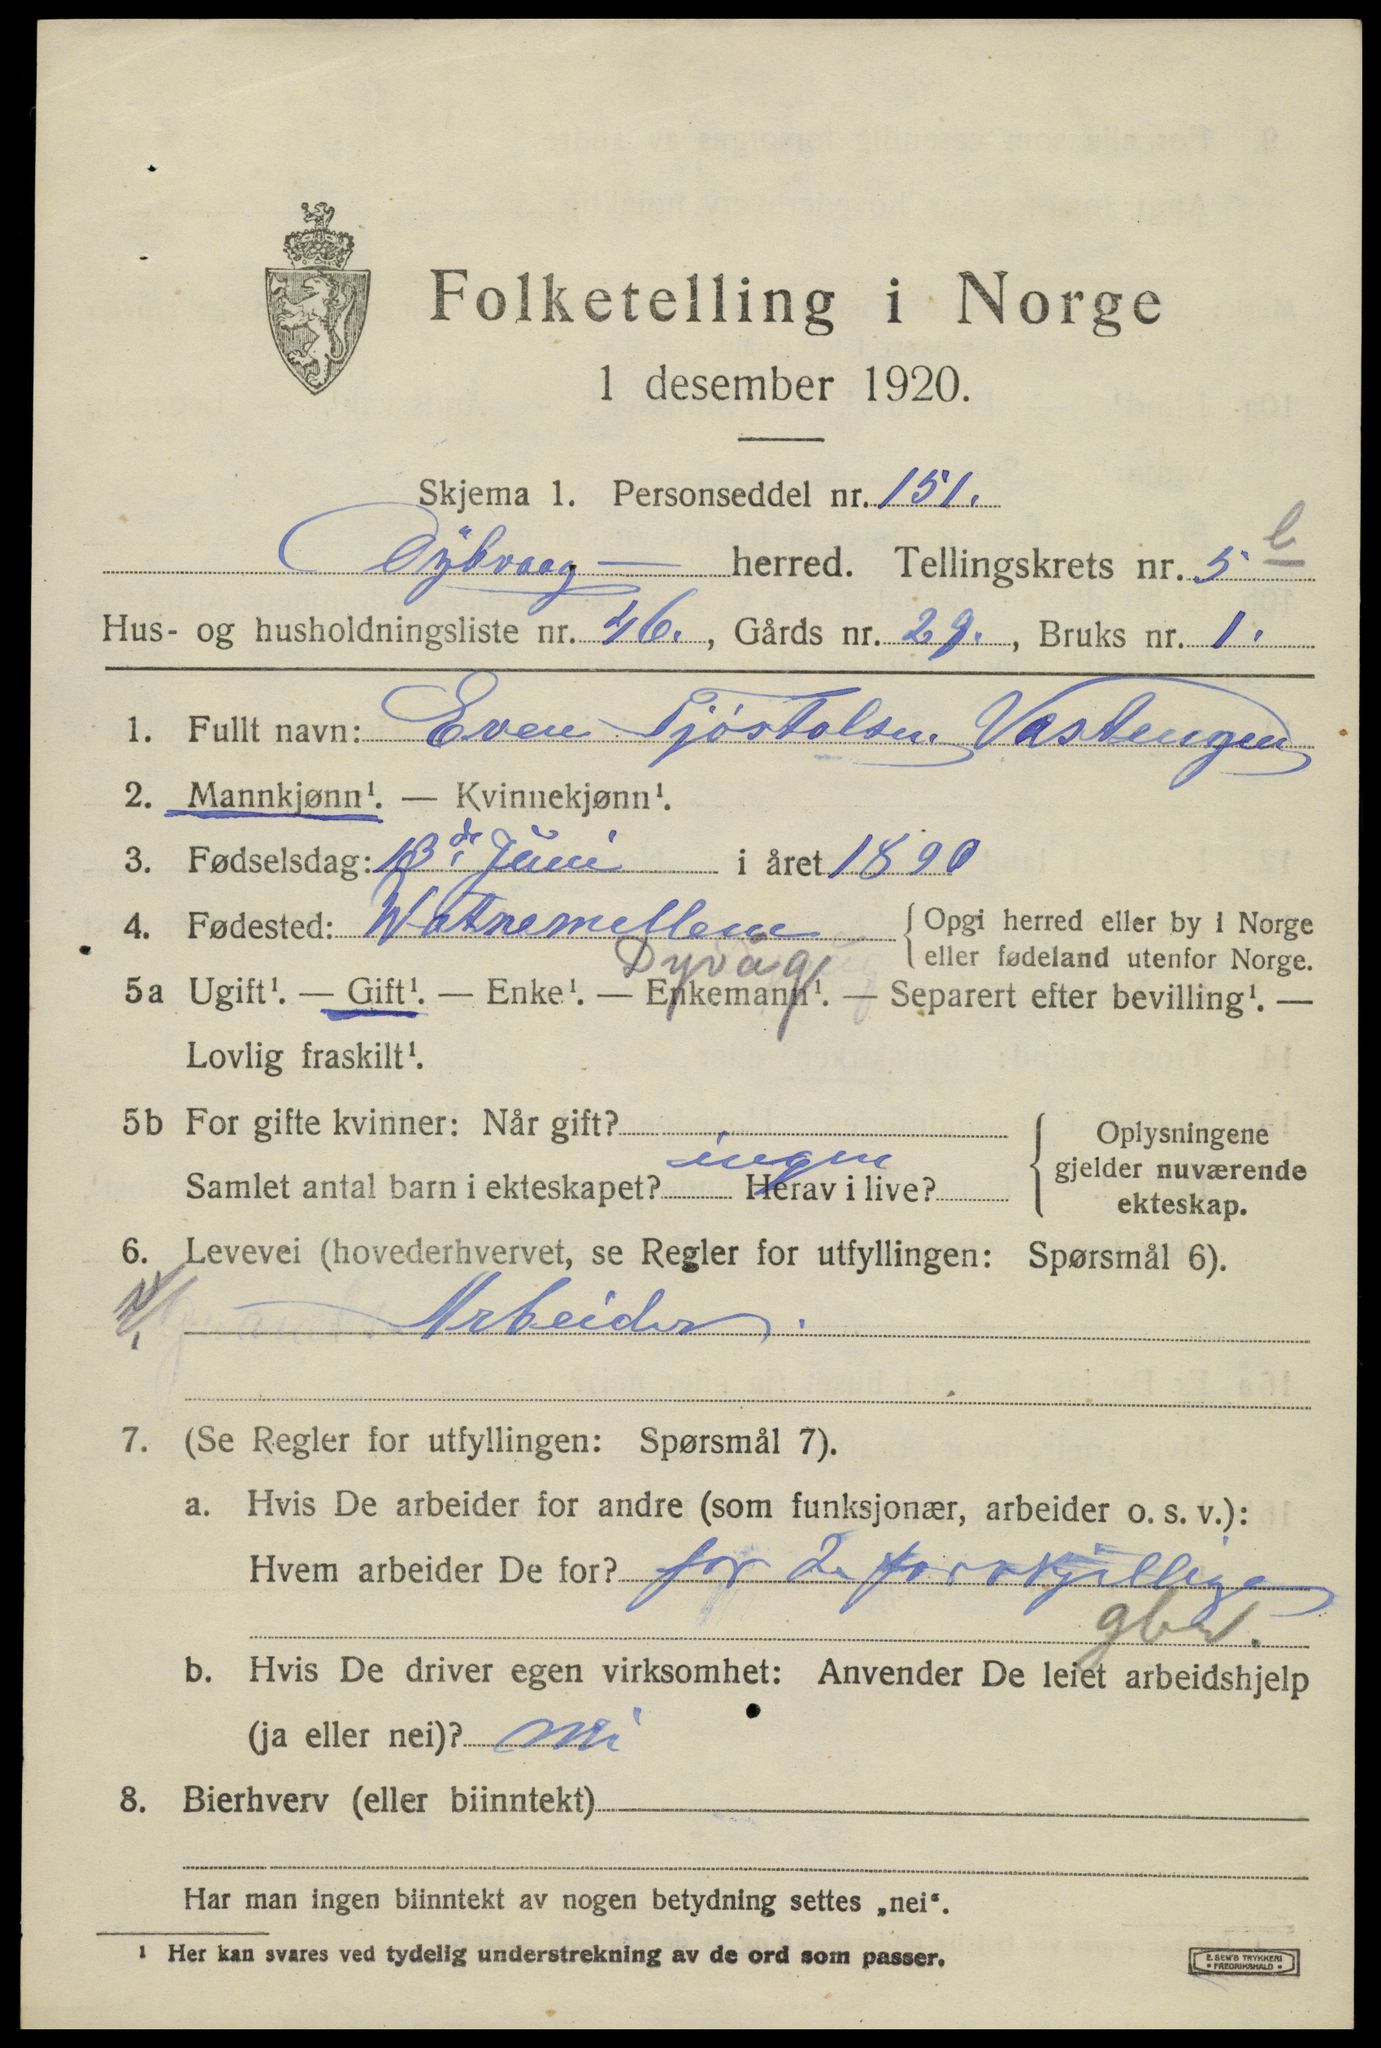 Folketelling i Norge
1 desember 1920.
Skjema 1. Personseddel nr. 151.
Dybvaag herred. Tellingskrets nr. 5 b
Hus- og husholdningsliste nr. 46., Gårds nr. 29., Bruks nr. 1.
1. Fullt navn: Even Tjøstolsen Vastengen
2. Mannkjønn¹. — Kvinnekjønn¹.
3. Fødselsdag: 13de Juni i året 1890
4. Fødested: Watnemellem { Opgi herred eller by i Norge
Dyvåg eller fødeland utenfor Norge.
5a Ugift¹. — Gift¹. — Enke¹. — Enkemann¹. — Separert efter bevilling¹. —
Lovlig fraskilt¹.
5b For gifte kvinner: Når gift?
Samlet antal barn i ekteskapet? ingen Herav i live?
{ Oplysningene
gjelder nuværende
ekteskap.
6. Levevei (hovederhvervet, se Regler for utfyllingen: Spørsmål 6).
Arbeider.
7. (Se Regler for utfyllingen: Spørsmål 7).
a. Hvis De arbeider for andre (som funksjonær, arbeider o. s. v.):
Hvem arbeider De for? for 2 forskjellige
gbr.
b. Hvis De driver egen virksomhet: Anvender De leiet arbeidshjelp
(ja eller nei)? nei
8. Bierhverv (eller biinntekt)
Har man ingen biinntekt av nogen betydning settes „nei“.
¹ Her kan svares ved tydelig understrekning av de ord som passer.
E. SEM'S TRYKKERI
• FREDRIKSHALD •